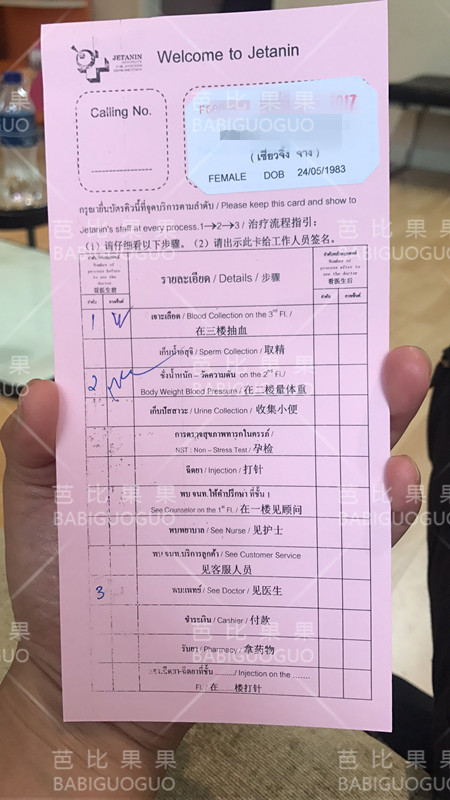 JETANIN
Welcome to Jetanin
Calling No.
2017
( เซียวจิ้ง จาง )
FEMALE DOB 24/05/1983
กรุณายื่นบัตรคิวนี้ที่จุดบริการตามลำดับ / Please keep this card and show to
Jetanin's staff at every process.1→2→3 / 治疗流程指引:
(1) 请仔细看以下步骤。(2) 请出示此卡给工作人员签名。
Number of process before to see the doctor
看医生前
รายละเอียด / Details / 步骤
Number of process after to see the doctor
看医生后
ลำดับ ลายเซ็นต์
ลำดับ ลายเซ็นต์
1
เจาะเลือด / Blood Collection on the 3rd Fl. /
在三楼抽血
เก็บน้ำอสุจิ / Sperm Collection / 取精
2
ชั่งน้ำหนัก – วัดความดัน on the 2nd Fl./
Body Weight Blood Pressure / 在三楼量体重
เก็บปัสสาวะ / Urine Collection / 收集小便
การตรวจสุขภาพทารกในครรภ์ /
NST : Non – Stress Test / 孕检
ฉีดยา / Injection / 打针
พบ จนท.ให้คำปรึกษา ที่ชั้น 1
See Counselor on the 1st Fl. / 在一楼见顾问
พบพยาบาล / See Nurse / 见护士
พบ จนท.บริการลูกค้า / See Customer Service
见客服人员
3
พบแพทย์ / See Doctor / 见医生
ชำระเงิน / Cashier / 付款
รับยา / Pharmacy / 拿药物
ฉีดยาที่ชั้น ....... / Injection on the .......
Fl. / 在 ___ 楼打针
芭比果果
BABIGUOGUO